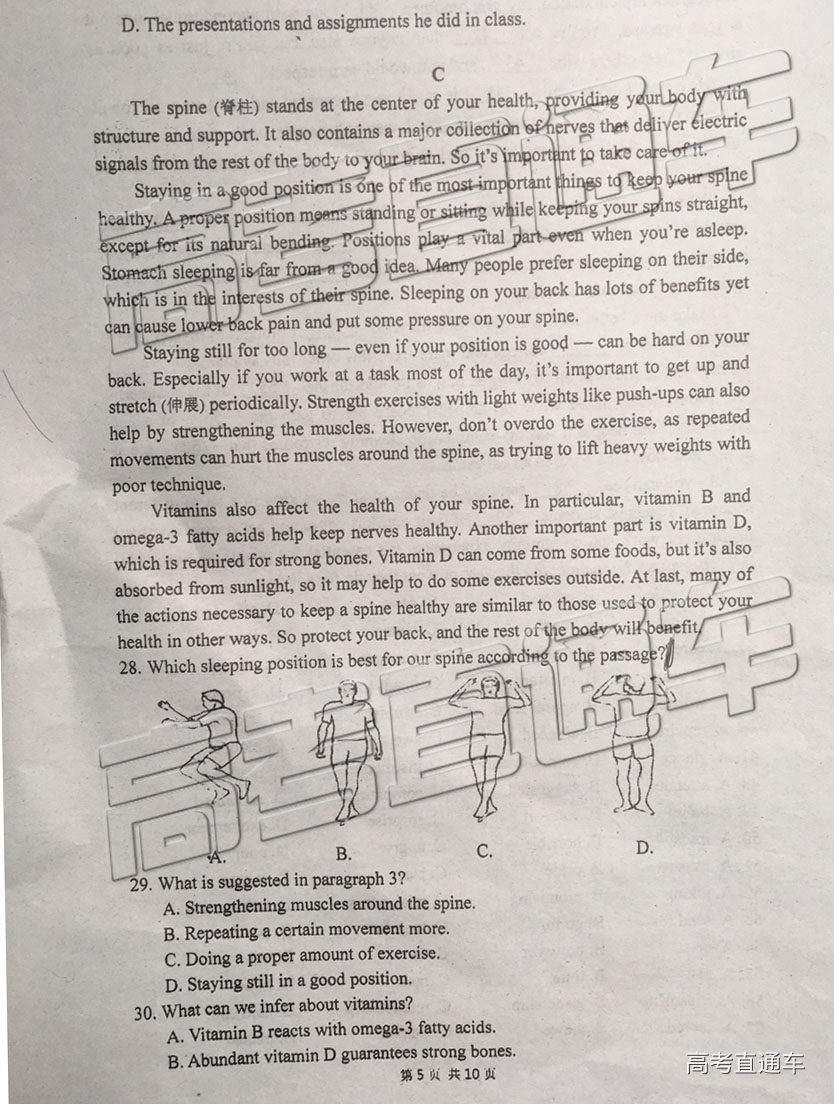 D. The presentations and assignments he did in class.
C
The spine (脊柱) stands at the center of your health, providing your body with
structure and support. It also contains a major collection of nerves that deliver electric
signals from the rest of the body to your brain. So it's important to take care of it.
Staying in a good position is one of the most important things to keep your spine
healthy. A proper position means standing or sitting while keeping your spins straight,
except for its natural bending. Positions play a vital part even when you're asleep.
Stomach sleeping is far from a good idea. Many people prefer sleeping on their side,
which is in the interests of their spine. Sleeping on your back has lots of benefits yet
can cause lower back pain and put some pressure on your spine.
Staying still for too long — even if your position is good — can be hard on your
back. Especially if you work at a task most of the day, it's important to get up and
stretch (伸展) periodically. Strength exercises with light weights like push-ups can also
help by strengthening the muscles. However, don't overdo the exercise, as repeated
movements can hurt the muscles around the spine, as trying to lift heavy weights with
poor technique.
Vitamins also affect the health of your spine. In particular, vitamin B and
omega-3 fatty acids help keep nerves healthy. Another important part is vitamin D,
which is required for strong bones. Vitamin D can come from some foods, but it's also
absorbed from sunlight, so it may help to do some exercises outside. At last, many of
the actions necessary to keep a spine healthy are similar to those used to protect your
health in other ways. So protect your back, and the rest of the body will benefit.
28. Which sleeping position is best for our spine according to the passage?
A. B. C. D.
29. What is suggested in paragraph 3?
A. Strengthening muscles around the spine.
B. Repeating a certain movement more.
C. Doing a proper amount of exercise.
D. Staying still in a good position.
30. What can we infer about vitamins?
A. Vitamin B reacts with omega-3 fatty acids.
B. Abundant vitamin D guarantees strong bones.
第 5 页 共 10 页
高考直通车
高考直通车
高考直通车